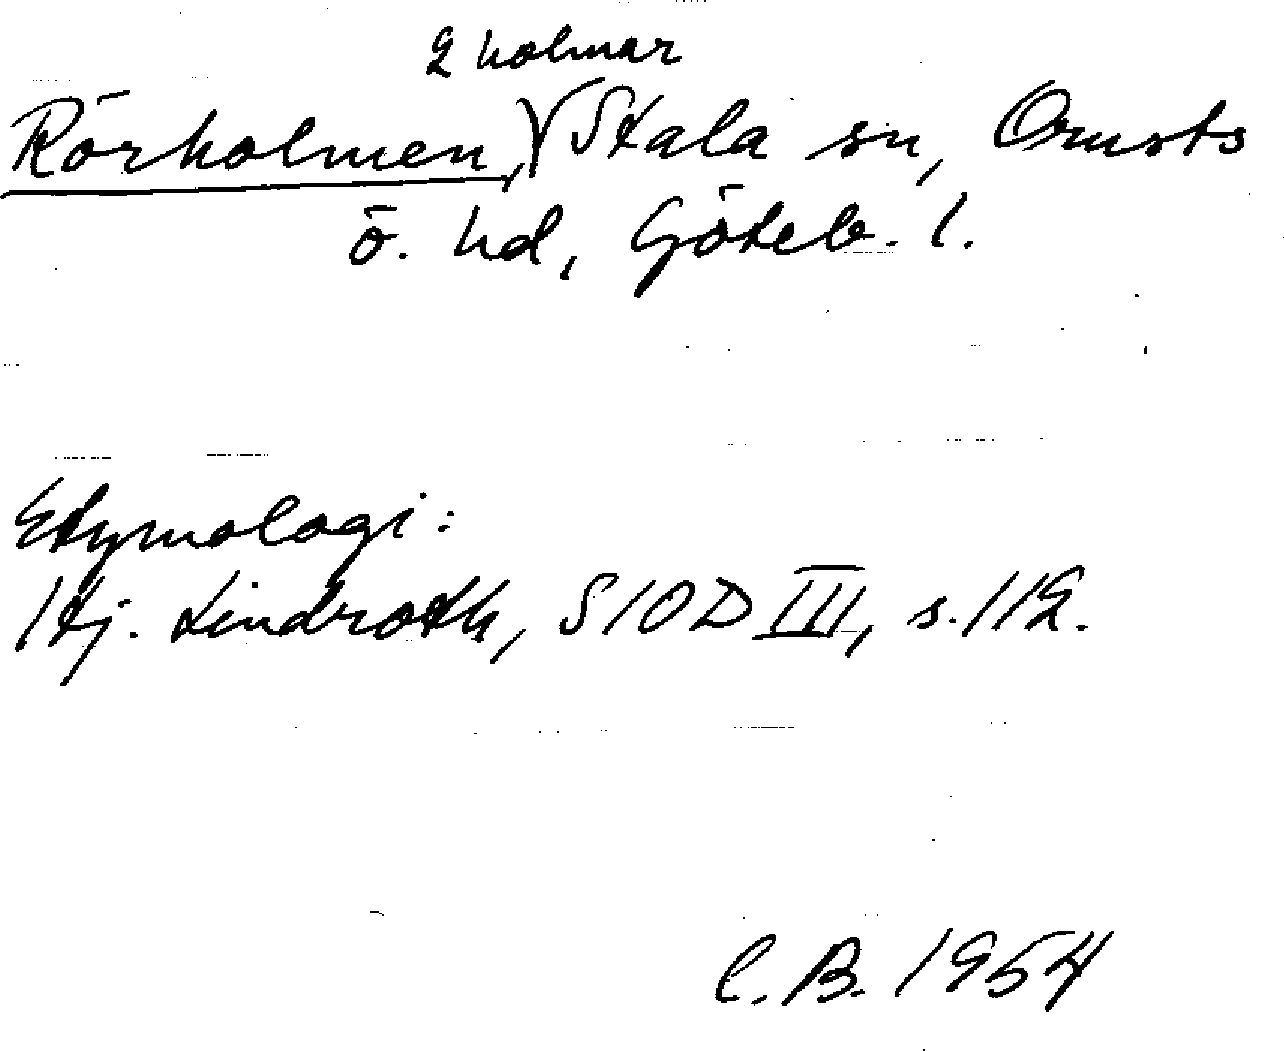 2 holmar
Rörholmen, Stala sn, Orusts
ö. hd, Göteb. l.
Etymologi:
Hj. Lindroth, SIOD III, s. 112.
C.B. 1954